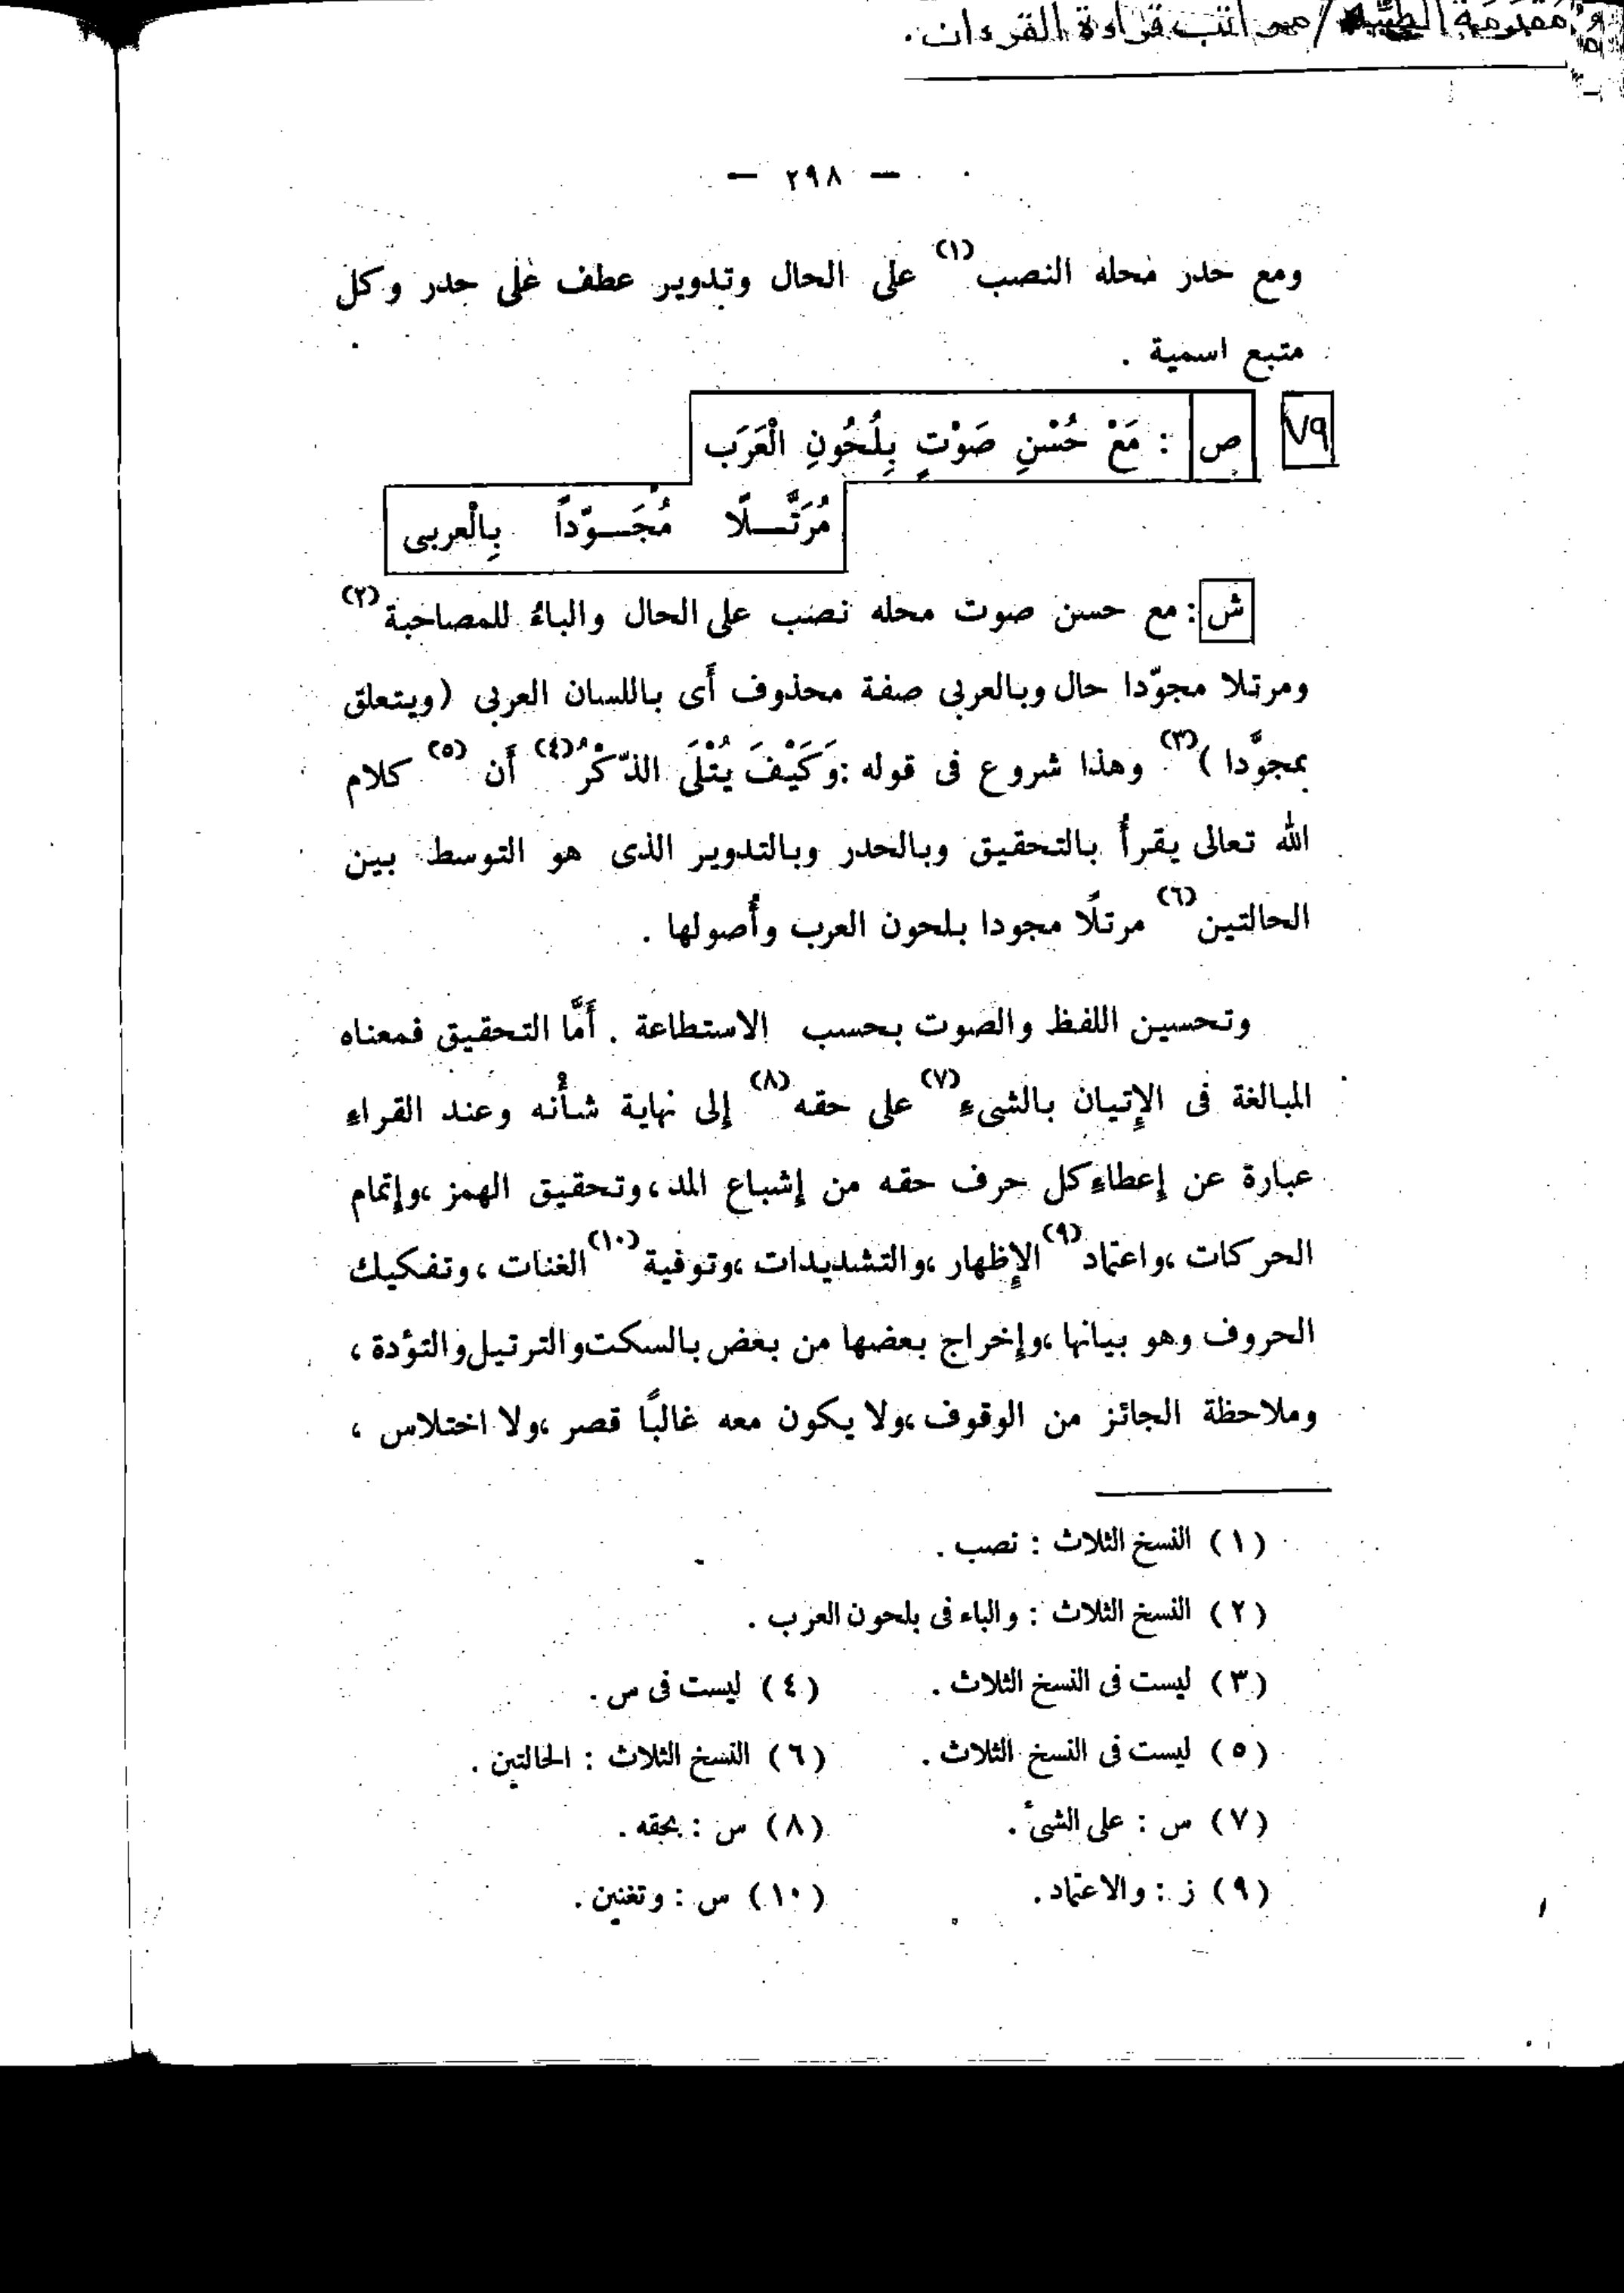 مقدمة الطيبة / مراتب قراءة القرءان.
— ٢٩٨ —
ومع حدر محله النصب(١) على الحال وتدوير عطف على حدر وكل
متبع اسمية .
٧٩ ص : مَعْ حُسْنِ صَوْتٍ بِلُحُونِ الْعَرَب
مُرَتَّـــلًا مُجَـــوّداً بِالْعربى
ش : مع حسن صوت محله نصب على الحال والباءُ للمصاحبة(٢)
ومرتلا مجوّدا حال وبالعربى صفة محذوف أَى باللسان العربى (ويتعلق
بمجوَّدا )(٣). وهذا شروع فى قوله :وَكَيْفَ يُتْلَى الذّكْرُ(٤) أَن (٥) كلام
الله تعالى يقرأُ بالتحقيق وبالحدر وبالتدوير الذى هو التوسط بين
الحالتين(٦) مرتلًا مجودا بلحون العرب وأُصولها .
وتحسين اللفظ والصوت بحسب الاستطاعة . أَمَّا التحقيق فمعناه
المبالغة فى الإِتيان بالشىءِ(٧) على حقه(٨) إلى نهاية شأْنه وعند القراءِ
عبارة عن إعطاءِ كل حرف حقه من إشباع المد ،وتحقيق الهمز ،وإتمام
الحركات ،واعتماد(٩) الإِظهار ،والتشديدات ،وتوفية(١٠) الغنات ، وتفكيك
الحروف وهو بيانها ،وإخراج بعضها من بعض بالسكت والترتيل والتؤدة ،
وملاحظة الجائز من الوقوف ،ولا يكون معه غالبًا قصر ،ولا اختلاس ،
(١) النسخ الثلاث : نصب .
(٢) النسخ الثلاث : والباء فى بلحون العرب .
(٣) ليست فى النسخ الثلاث . (٤) ليست فى س .
(٥) ليست فى النسخ الثلاث . (٦) النسخ الثلاث : الحالتين .
(٧) س : على الشىْ . (٨) س : بحقه .
(٩) ز : والاعتماد . (١٠) س : وتغنين .